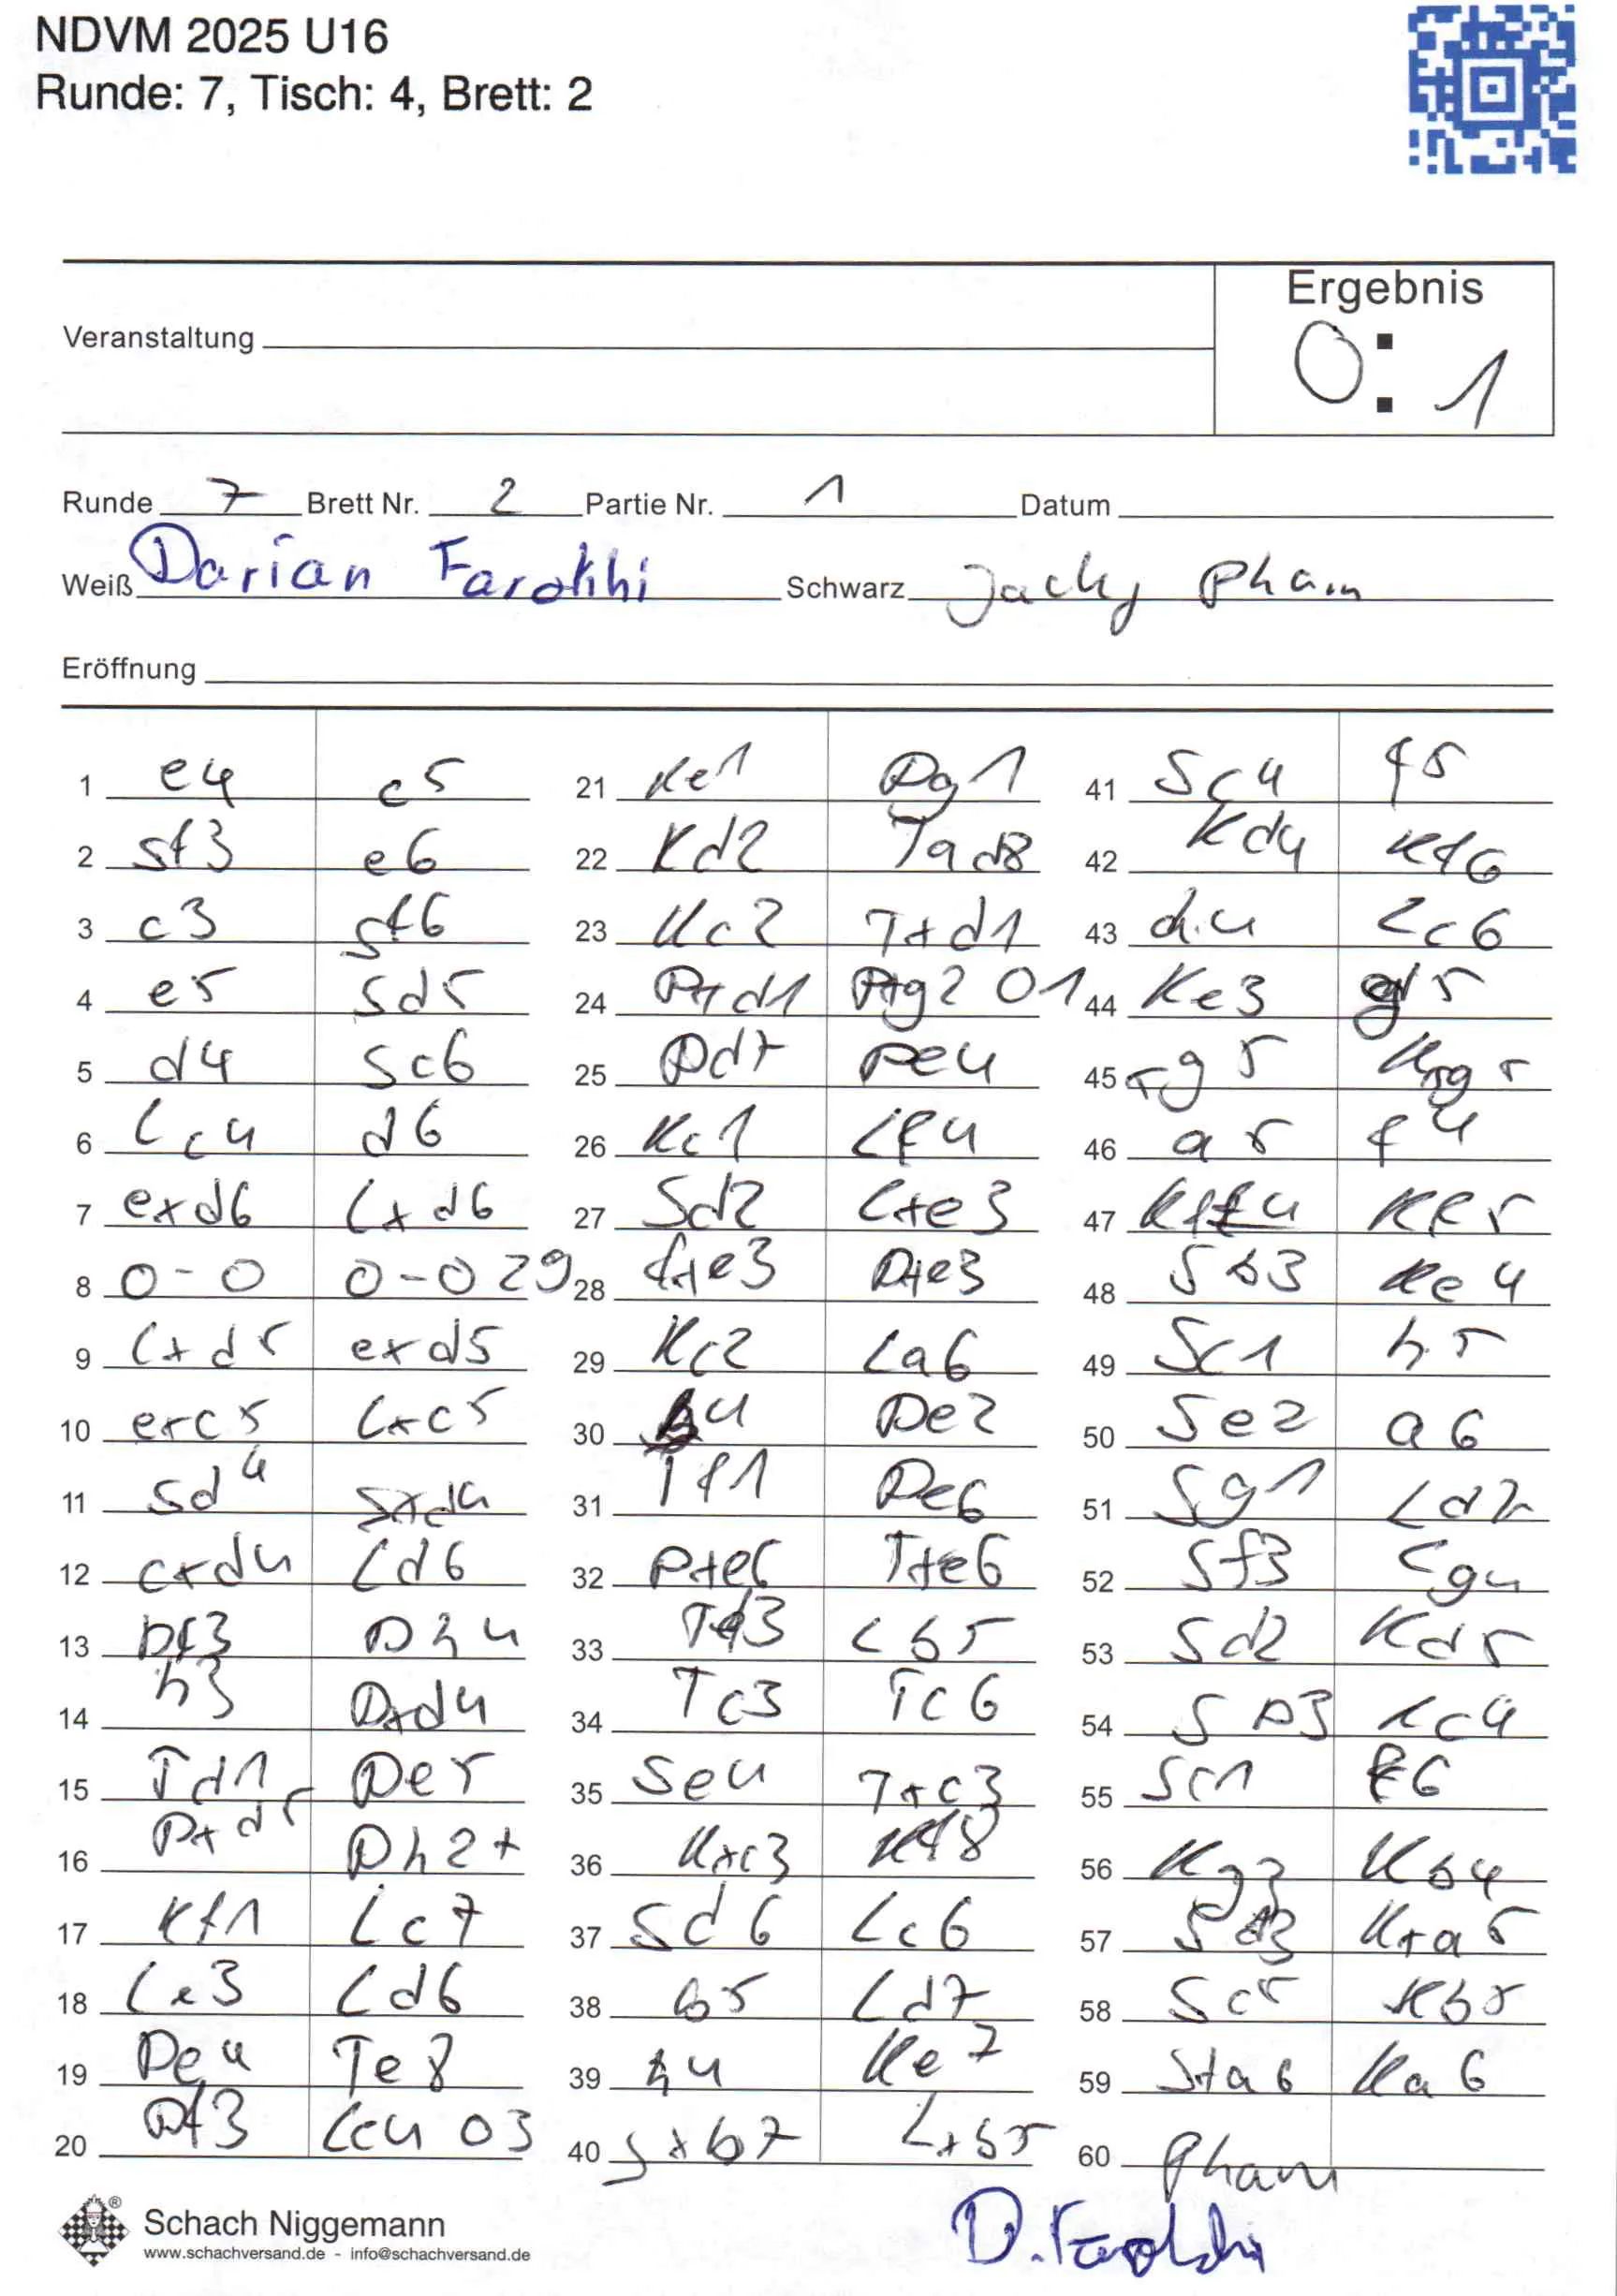 NDVM 2025 U16
Runde: 7, Tisch: 4, Brett: 2
Ergebnis
Veranstaltung
0:1
Runde 7 Brett Nr. 2 Partie Nr. 1 Datum
Weiß Darian Farokhi Schwarz Jacky Pham
Eröffnung
1 e4 c5 21 Ke1 Dg1 41 Sc4 f5
2 Sf3 e6 22 Kd2 Tad8 42 Kd4 Kf6
3 c3 Sf6 23 Kc2 Txd1 43 a4 Lc6
4 e5 Sd5 24 Dxd1 Dxg2 01 44 Ke3 g5
5 d4 Sc6 25 Dd7 De4 45 xg5 Kxg5
6 Lc4 d6 26 Kc1 Lf4 46 a5 f4
7 exd6 Lxd6 27 Sd2 Lxe3 47 Kf4 Kf5
8 0-0 0-0 29 28 fxe3 Dxe3 48 Sb3 Ke4
9 Lxd5 exd5 29 Kc2 La6 49 Sc1 h5
10 exc5 Lxc5 30 b4 De2 50 Se2 a6
11 Sd4 Sxd4 31 Tf1 De6 51 Sg1 Ld7
12 cxd4 Ld6 32 Dxe6 Txe6 52 Sf3 Lg4
13 Df3 Dh4 33 Tf3 Lb5 53 Sd2 Kd5
14 h3 Dxd4 34 Tc3 Tc6 54 Sb3 Kc4
15 Td1 De5 35 Se4 Txc3 55 Sc1 f6
16 Dxd5 Dh2+ 36 Kxc3 Kf8 56 Kg3 Kb4
17 Kf1 Lc7 37 Sd6 Lc6 57 Sd3 Kxa5
18 Le3 Ld6 38 b5 Ld7 58 Sc5 Kb5
19 De4 Te8 39 h4 Ke7 59 Sxa6 Ka6
20 Df3 Lc4 03 40 Sxb7 Lxb5 60 Pham
Schach Niggemann
www.schachversand.de - info@schachversand.de
D. Farokhi